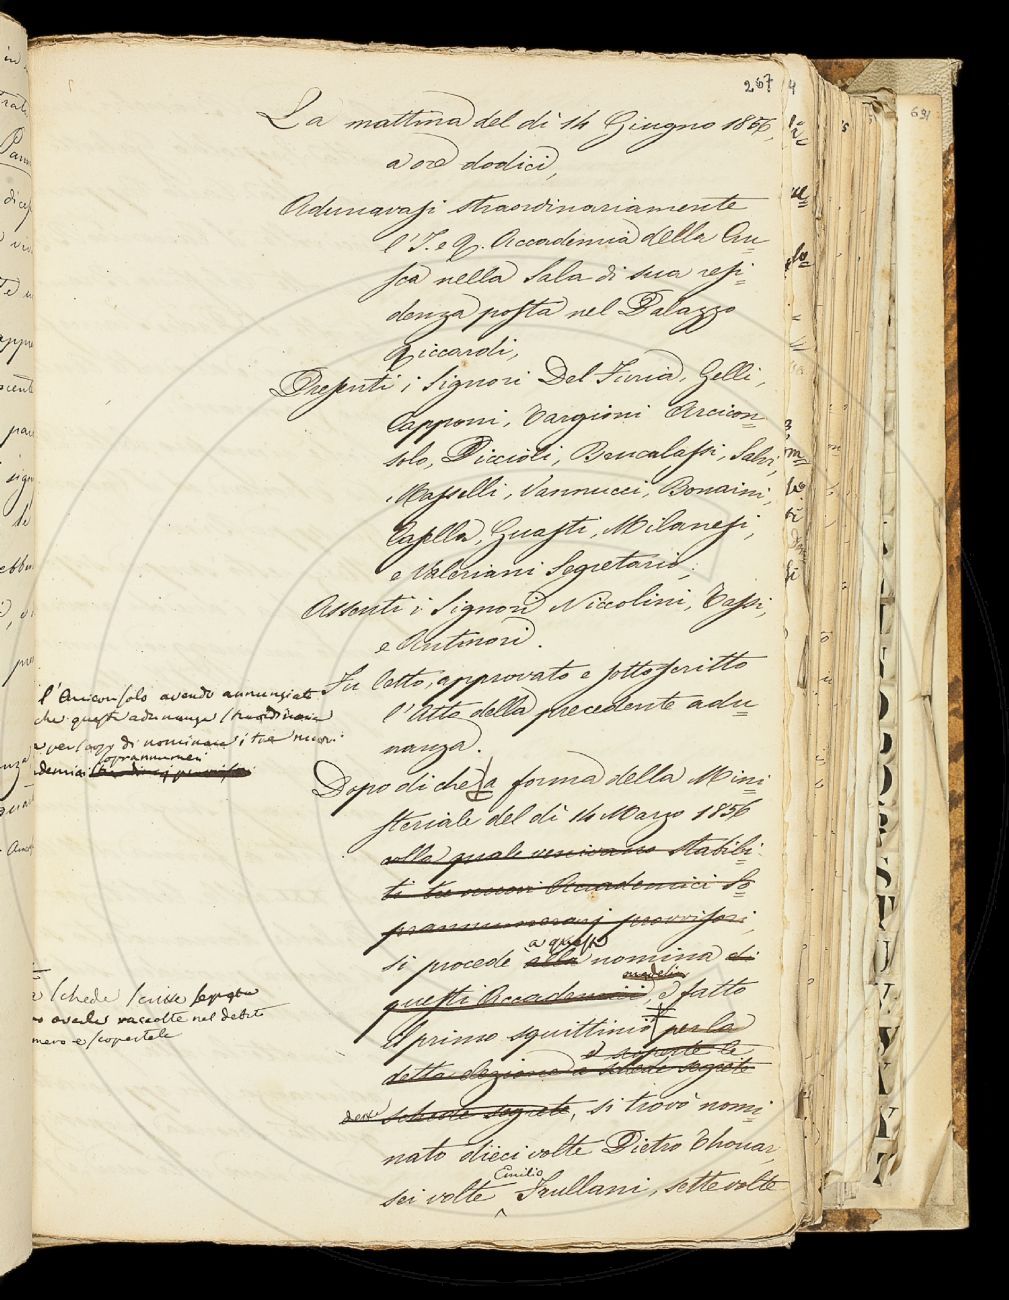 267
La mattina del dì 14 Giugno 1856,
a ore dodici,
Adunavasi straordinariamente
l'I. e R. Accademia della Cru=
sca nella Sala di sua resi=
denza posta nel Palazzo
Riccardi,
Presenti i Signori Del Furia, Gelli,
Capponi, Targioni Arcicon=
solo, Piccioli, Bencalassi, Salvi,
Masselli, Vannucci, Bonaini,
Casella, Guasti, Milanesi,
e Valeriani Segretario;
Assenti i Signori Niccolini, Tassi,
e Antinori.
Fu letto, approvato e sottoscritto
l'Atto della precedente adu=
nanza.
l'Arciconsolo avendo annunziato
che questa adunanza straordinaria
per nominare i tre nuovi
soprannumeri
Dopo di che a forma della Mini=
steriale del dì 14 Marzo 1856
colla quale venivano stabili=
ti tre nuovi Accademici So=
prannumerarj provvisori,
a questa
si procede alla nomina di
medesimi
questi Accademici, e fatto
il primo squittinio per la
e scoperte le
detta elezione a schede segrete
schede scritte segrete
avendo raccolte nel debito
numero e scopertele
schede segrete, si trovò nomi=
nato dieci volte Pietro Thouar,
Emilio
sei volte Frullani, sette volte
631